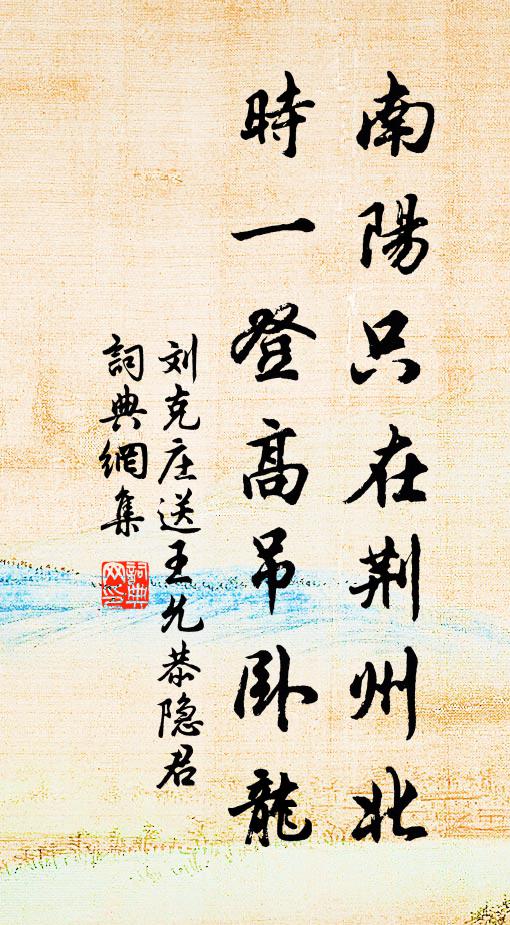 南陽只在荆州北
時一登高吊卧龍
刘克庄送王允恭隐君
詞典網集
詞典網印